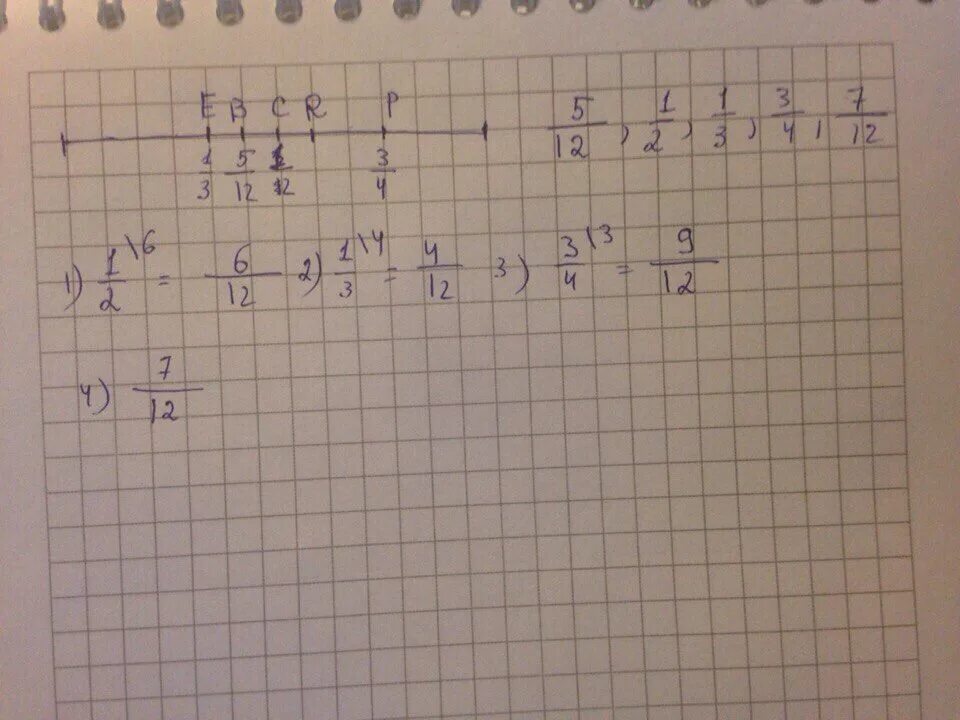 E B C R P
1/3 5/12 1/2 3/4
5/12, 1/2, 1/3, 3/4, 7/12
1) 1/2 \6 = 6/12 2) 1/3 \4 = 4/12 3) 3/4 \3 = 9/12
4) 7/12